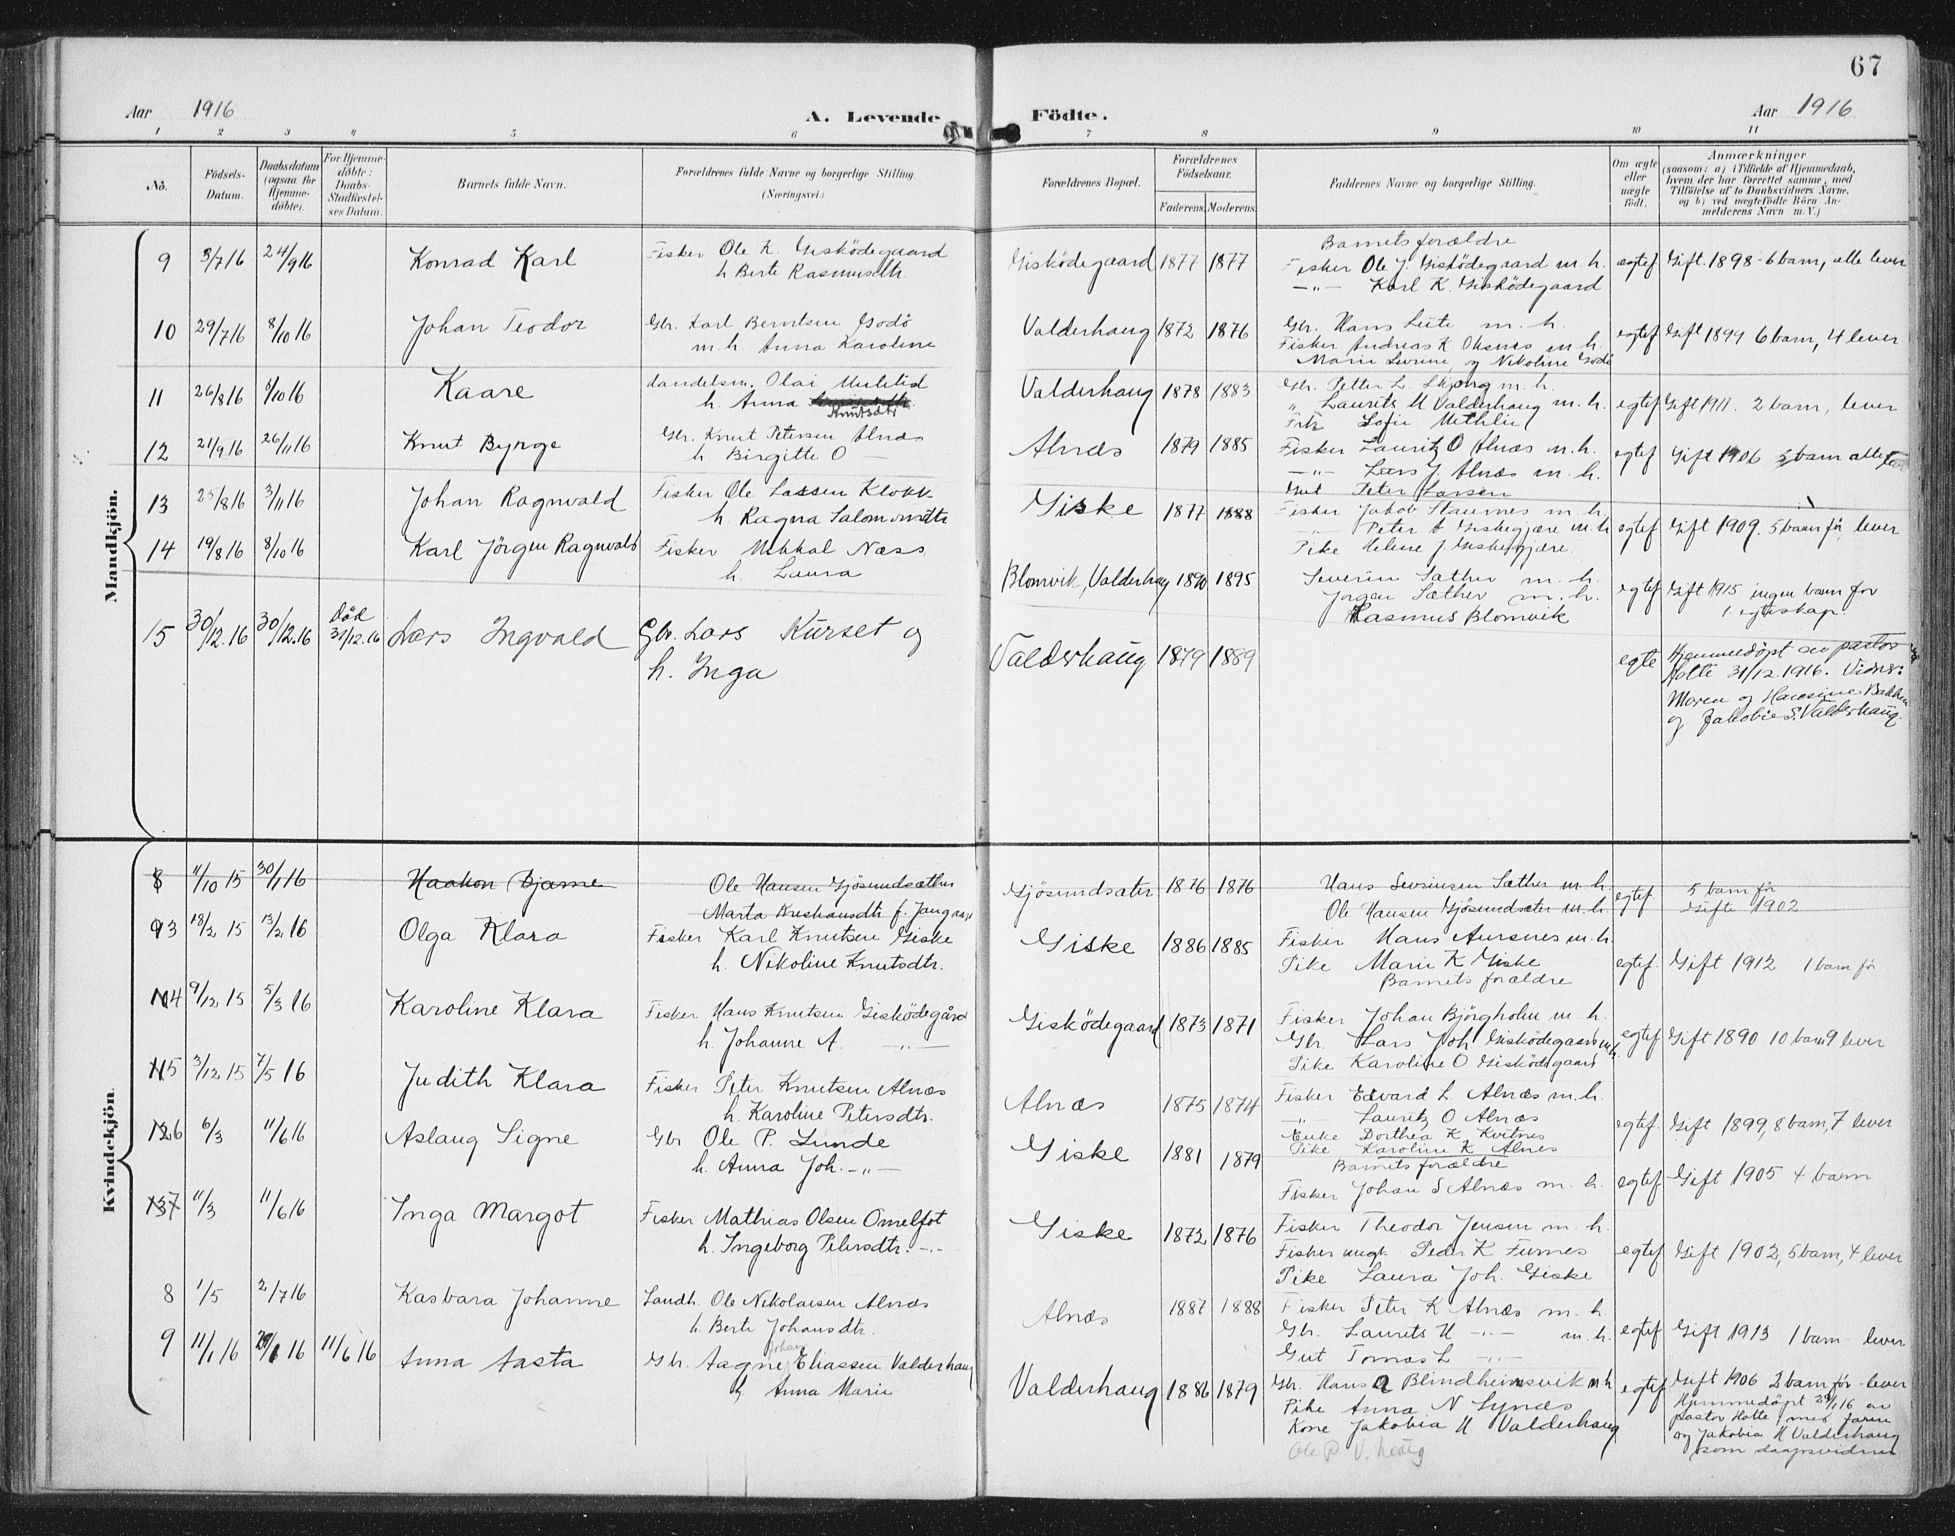 67
Aar 1916 A. Levende Födte. Aar 1916
1 2 3 4 5 6 7 8 9 10 11
No. Födsels-Datum. Daabsdatum (ogsaa for Hjemme-döbte). For Hjemme-döbte: Daabs-Stadfæstel-ses Datum. Barnets fulde Navn. Forældrenes fulde Navne og borgerlige Stilling. (Næringsvei.) Forældrenes Bopæl. Forældrenes Födselsaar. Faderens. Moderens. Faddernes Navne og borgerlige Stilling. Om ægte eller uægte födt. Anmærkninger (saasom: a) i Tilfælde af Hjemmedaab, hvem der har forrettet samme, med Tilföielse af to Daabsvidners Navne, og b) ved uægtefödte Börn An-melderens Navn m. V.)
Mandkjön.
Barnets forældre
9 3/7 16 24/9 16 Konrad Karl Fisker Ole K. Gisködegaard Gisködegaard 1877 1877 Fisker Ole J. Gisködegaard m. h. egtef Gift 1898 - 6 barn, alle lever
h Berte Rasmusdtr. —„— Karl K. Gisködegaard
10 29/7 16 8/10 16 Johan Teodor Gbr. Karl Berntsen Godö Valderhaug 1872 1876 Gbr. Hans m. h. egtef Gift 1899 6 barn, 4 lever
m. h. Anna Karoline Fisker Andreas K. Oksnes m. h.
Marie Severine og Nikoline Godö
11 26/8 16 8/10 16 Kaare Handelsm. Olai Valderhaug 1878 1883 Gbr. Petter L. Skjong m. h. egtef Gift 1911. 2 barn, lever
h. Anna Knutsdtr „ Laurits M Valderhaug m. h.
Sofie
12 21/9 16 26/11 16 Knut Byrge Gbr. Knut Petersen Alnæs Alnæs 1879 1885 Fisker Lauritz O Alnæs m. h. egtef Gift 1906 5 barn alle
h. Birgitte O — —„— Lars J. Alnæs m. h.
Gut Peter Larsen
13 25/8 16 3/11 16 Johan Ragnvald Fisker Ole Lassen Klokk Giske 1877 1888 Fisker Jakob Staurnes m. h. egtef Gift 1909. 5 barn før, lever
h. Ragna Salomonsdtr Peter A Giskegjære m. h
Pike Helene J. Giskegjære
14 19/8 16 8/10 16 Karl Jörgen Ragnvald Fisker Mikkal Næss Blomvik, Valderhaug 1890 1895 Severin Sæther m. h. egtef Gift 1915 ingen barn før
h. Laura Jörgen Sæther m. h. i egteskap.
Rasmus Blomvik
15 30/12. 16 30/12. 16 Død 31/12. 16 Lars Ingvald Gbr. Lars Kurset og Valderhaug 1879 1889 egte Hjemmedöpt av pastor
h. Inga Holte 31/12. 1916. Vidner:
Maren og Hansine Bakken
og Jakobie S. Valderhaug.
Kvindekjön.
8 11/10 15 30/1 16 Haakon Bjarne Ole Hansen Gjösundsæther Gjösundsæter 1876 1876 Hans Sivertsen Sæther m. h. egtef. 5 barn før
Marta Kristiansdtr f. Ole Hansen Gjösundsæter m. h Gifte 1902
3 18/2 15 13/2 16 Olga Klara Fisker Karl Knutsen Giske Giske 1886 1885 Fisker Hans Aursnes m. h. egtef. Gift 1912 1 barn før
h. Nikoline Knutsdtr. Pike Marie K Giske
Barnets forældre
4 9/12 15 5/3 16 Karoline Klara Fisker Hans Knutsen Gisködegård Gisködegaard 1873 1871 Fisker Johan Björgholm m. h. egtef Gift 1890 10 barn 9 lever
h. Johanne A. —„— Gbr. Lars Joh. Gisködegaard m. h.
Pike Karoline O Gisködegaard
5 3/12 15 7/5 16 Judith Klara Fisker Peter Knutsen Alnæs Alnæs 1875 1874 Fisker Edvard L. Alnæs m. h. egtef. Gift 1899, 8 barn, 7 lever
h. Karoline Petersdtr. —„— Lauritz O Alnæs
Enke Dorthea K. Kvitnes
Pike Karoline K Alnes
6 6/3 11/6 16 Aslaug Signe Gbr Ole P. Lunde Giske 1881 1879 Barnets forældre egtef. Gift 1905 4 barn
h. Anna Joh. —„— Fisker Johan S Alnæs m. h.
7 11/3 11/6 16 Inga Margot Fisker Mathias Olsen Omelfot Giske 1872 1876 Fisker Theodor Jensen m. h. egtef Gift 1902, 5 barn, 4 lever
h. Ingeborg Petersdtr. —„— Fisker ungk. Peder K Furnes
Pike Laura Joh. Giske
8 1/5 2/7 16 Kasbara Johanne Landh. Ole Nikolaisen Alnæs Alnæs 1887 1888 Fisker Peter K Alnæs m. h. egtef Gift 1913 1 barn - lever
h. Berte Johansdtr. Gbr. Laurits M —„— m. h.
Gut Tomas L —„—
9 11/1 16 29/1 16 11/6 16 Anna Aasta Gbr. Aagne Johan Eliassen Valderhaug Valderhaug 1886 1879 Gbr. Hans A Blindheimsvik m h egtef Gift 1906 2 barn før - lever
h Anna Marie Pike Anna N Synæs Hjemmedöpt 29/1 16 av
Kone Jakobia M Valderhaug pastor Holte, med Jaren
Ole P V. haug og Jakobia M Valderhaug
som daapsvidner